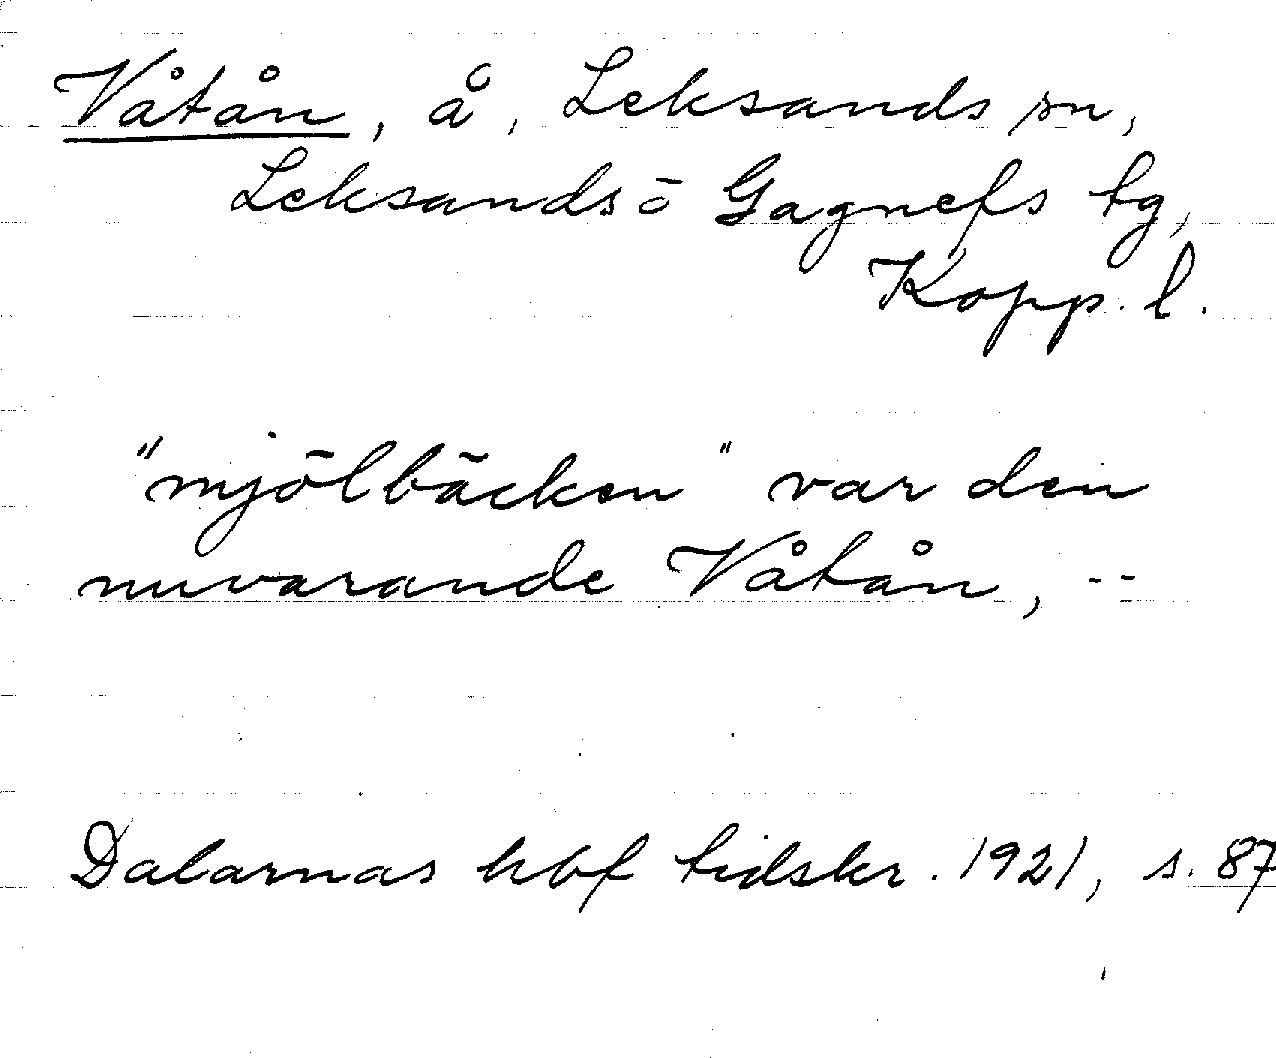 Våtån, å, Leksands sn,
Leksands o Gagnefs tg,
Kopp. l.
"mjölbäcken" var den
nuvarande Våtån, --
Dalarnas hbf tidskr. 1921, s. 87